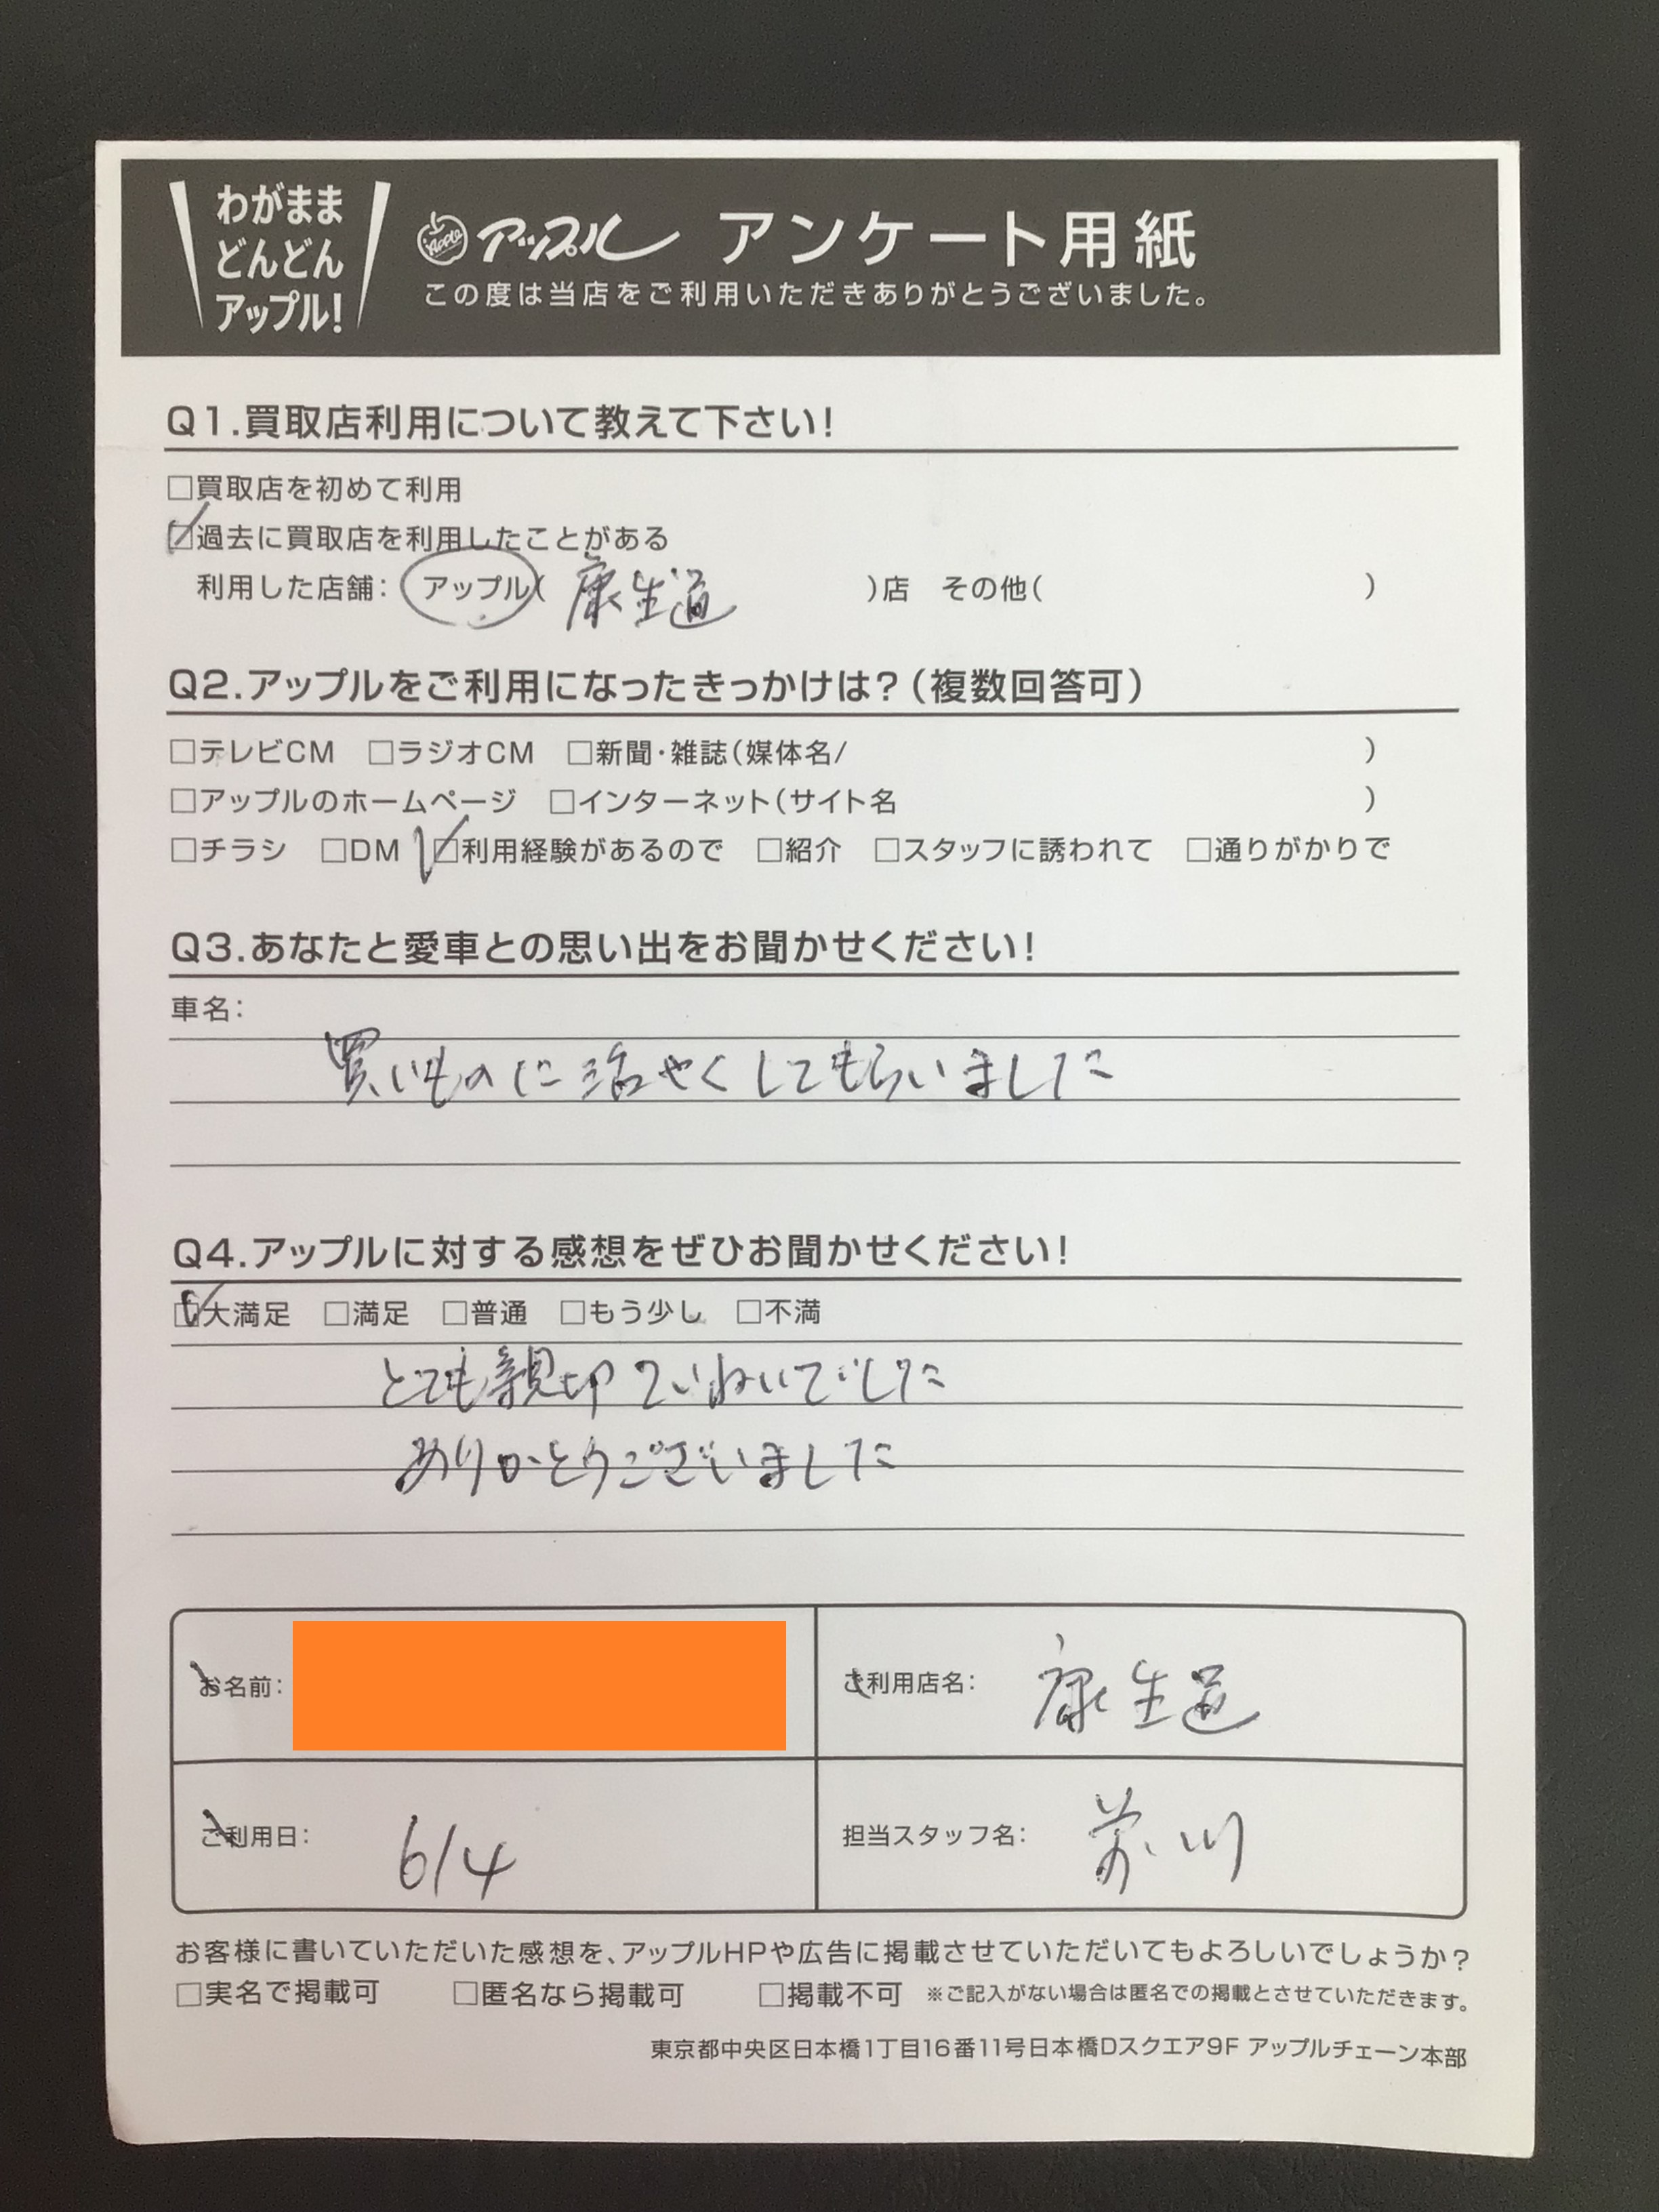 わがまま
どんどん
アップル!
Apple アップル アンケート用紙
この度は当店をご利用いただきありがとうございました。
Q1.買取店利用について教えて下さい!
□買取店を初めて利用
☑過去に買取店を利用したことがある
利用した店舗: アップル( 康生道 )店 その他( )
Q2.アップルをご利用になったきっかけは?(複数回答可)
□テレビCM □ラジオCM □新聞・雑誌(媒体名/ )
□アップルのホームページ □インターネット(サイト名 )
□チラシ □DM ☑利用経験があるので □紹介 □スタッフに誘われて □通りがかりで
Q3.あなたと愛車との思い出をお聞かせください!
車名:
買いものに活やくしてもらいました
Q4.アップルに対する感想をぜひお聞かせください!
☑大満足 □満足 □普通 □もう少し □不満
とても親切ていねいでした
ありがとうございました
お名前: ご利用店名: 康生道
ご利用日: 6/4 担当スタッフ名: 前川
お客様に書いていただいた感想を、アップルHPや広告に掲載させていただいてもよろしいでしょうか?
□実名で掲載可 □匿名なら掲載可 □掲載不可 ※ご記入がない場合は匿名での掲載とさせていただきます。
東京都中央区日本橋1丁目16番11号日本橋Dスクエア9F アップルチェーン本部